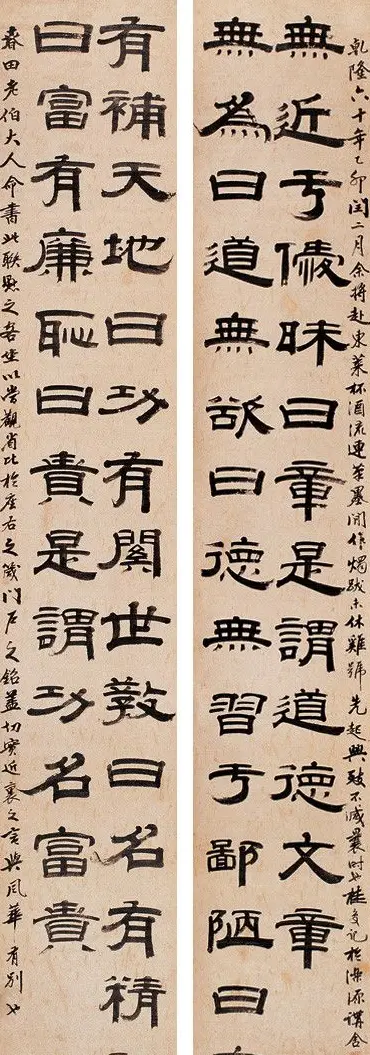 無為曰道無欲曰德無習于鄙陋曰
無近于僾昧曰章是謂道德文章
乾隆六十年乙卯閏二月余將赴東萊杯酒流連筆墨間作燭跋未休雞號先起興致不減曩時也桂馥記於濼源講舍
有補天地曰功有關世教曰名有精
曰富有廉恥曰貴是謂功名富貴
春田老伯大人命書此聯懸之各坐以當觀省比於座右之箴門戶之銘蓋切實近裏之言與風華有別也